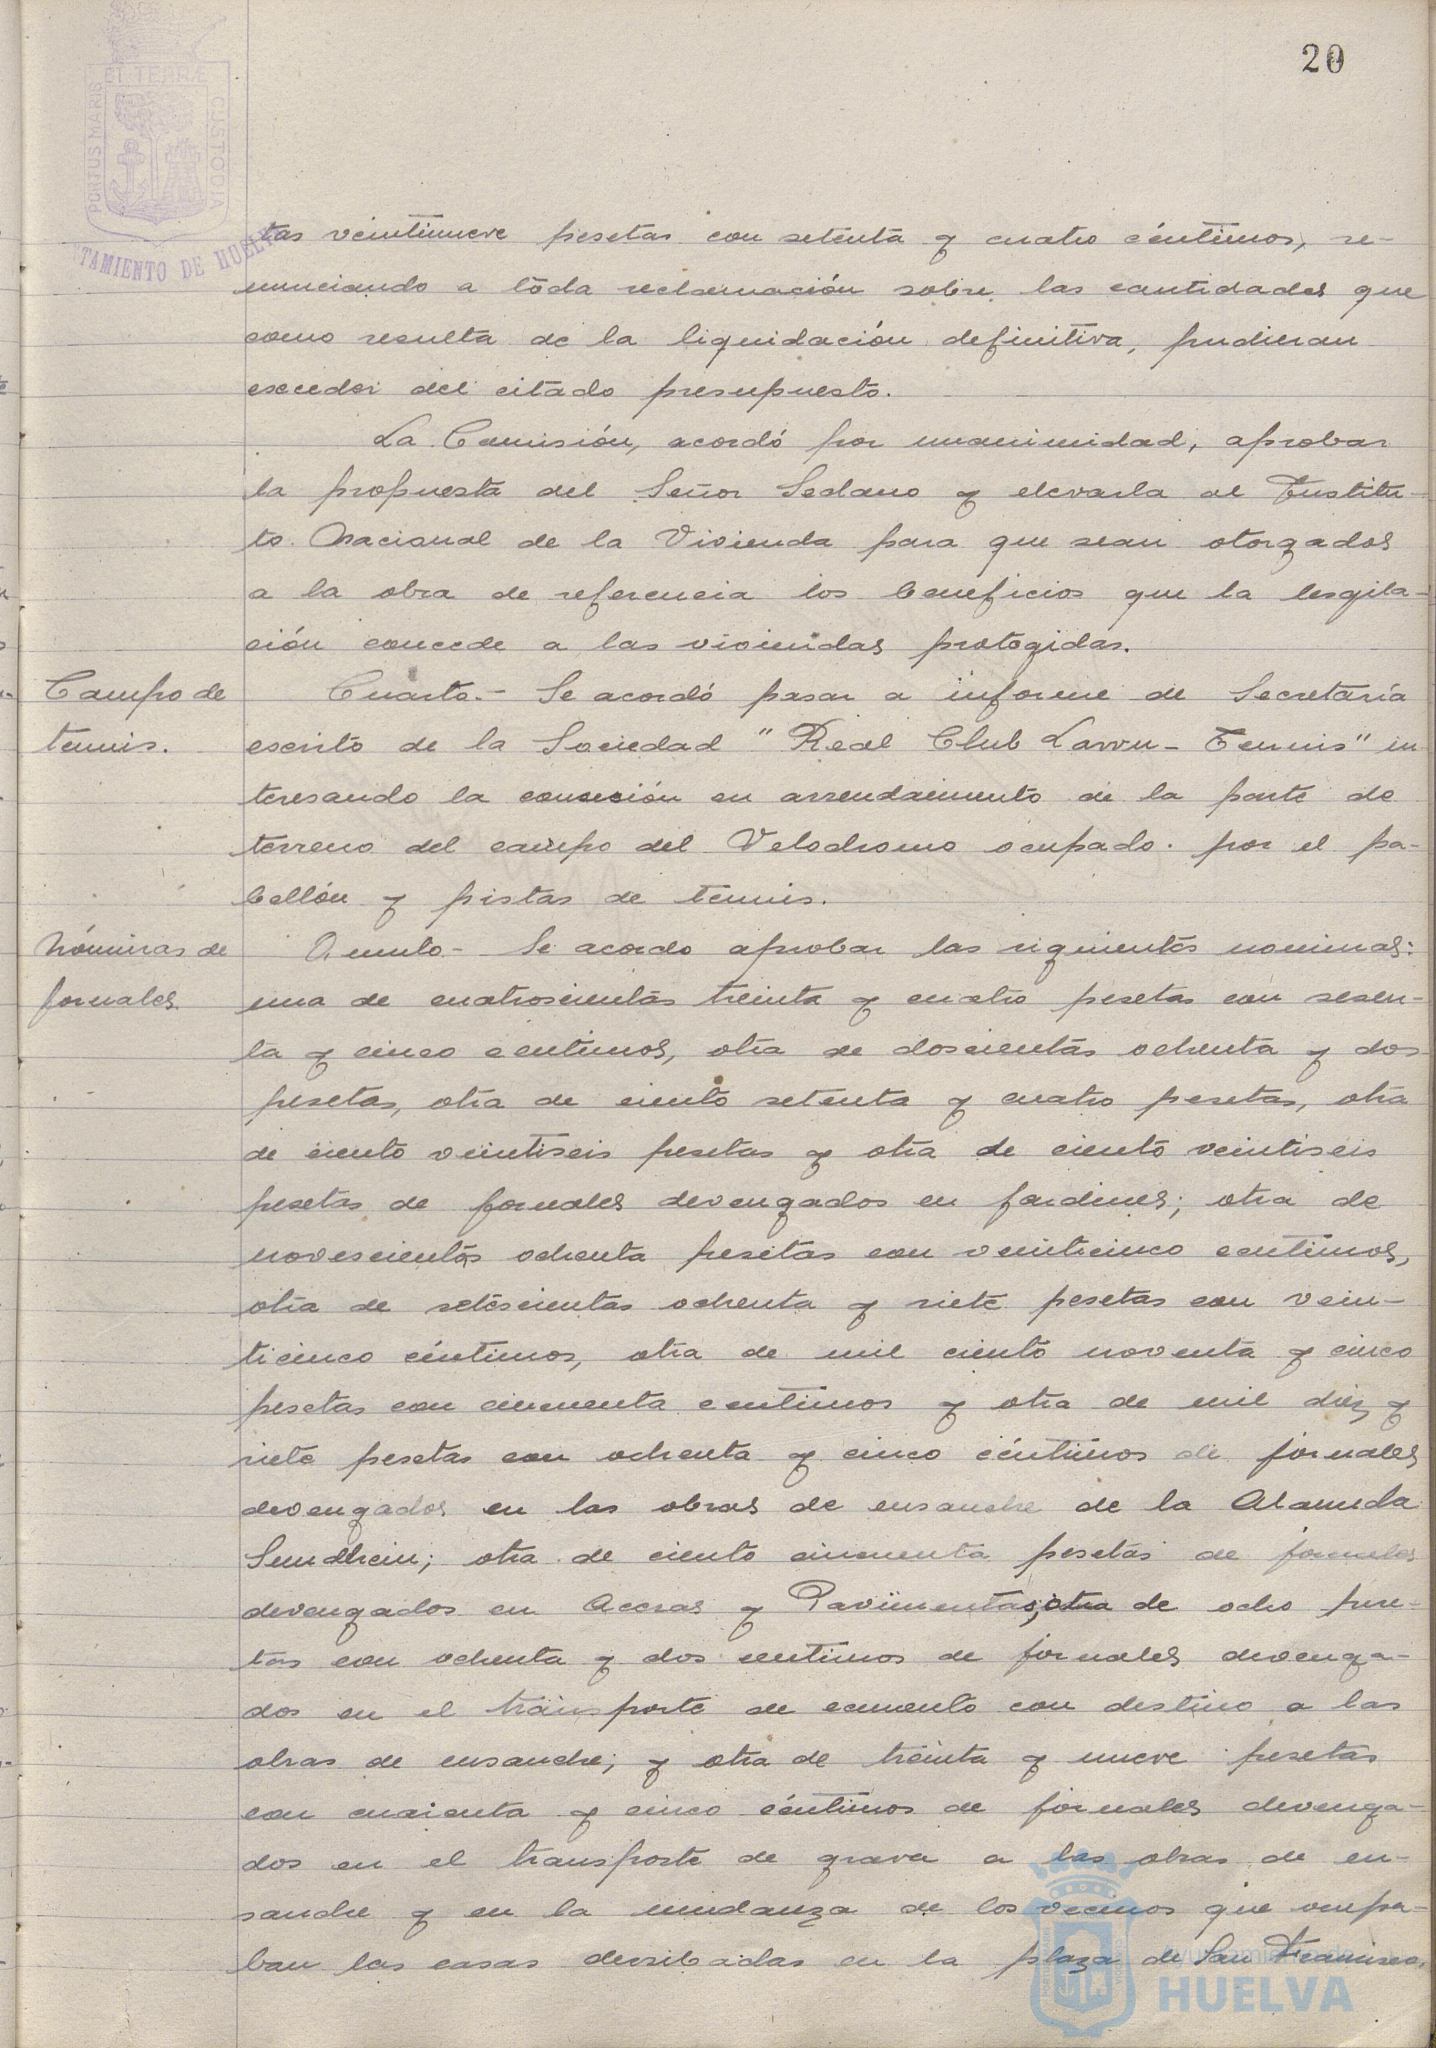 20
PORTUS MARIS ET TERRÆ CUSTODIA
TAMIENTO DE HUELVA
tas veintinueve pesetas con setenta y cuatro céntimos, re-
nunciando a toda reclamación sobre las cantidades que
como resulta de la liquidación definitiva, pudieran
exceder del citado presupuesto.
La Comisión, acordó por unanimidad, aprobar
la propuesta del Señor Sedano y elevarla al Institu-
to Nacional de la Vivienda para que sean otorgados
a la obra de referencia los beneficios que la lesgila-
ción concede a las viviendas protegidas.
Campo de
tennis.
Cuarto.- Se acordó pasar a informe de Secretaría
escrito de la Sociedad "Real Club Lawn-Tennis" in
teresando la concesión en arrendamiento de la parte de
terreno del campo del Velodromo ocupado por el pa-
bellón y pistas de tennis.
Nóminas de
jornales
Quinto- Se acordo aprobar las siguientes nominas:
una de cuatroscientas treinta y cuatro pesetas con sesen-
ta y cinco centimos, otra de doscientas ochenta y dos
pesetas, otra de ciento setenta y cuatro pesetas, otra
de ciento veintiseis pesetas y otra de ciento veintiseis
pesetas de jornales devengados en jardines; otra de
novescientas ochenta pesetas con veinticinco centimos,
otra de setescientas ochenta y siete pesetas con vein-
ticinco céntimos, otra de mil ciento noventa y cinco
pesetas con cincuenta centimos y otra de mil diez y
siete pesetas con ochenta y cinco céntimos de jornales
devengados en las obras de ensanche de la Alameda
Sundhein; otra de ciento cincuenta pesetas de jornales
devengados en Aceras y Pavimentas; otra de ocho pese-
tas con ochenta y dos centimos de jornales devenga-
dos en el transporte de cemento con destino a las
obras de ensanche; y otra de treinta y nueve pesetas
con cuarenta y cinco céntimos de jornales devenga-
dos en el transporte de grava a las obras de en-
sanche y en la mudanza de los vecinos que ocupa-
ban las casas derribadas en la plaza de San Francisco.
Ayuntamiento de
HUELVA